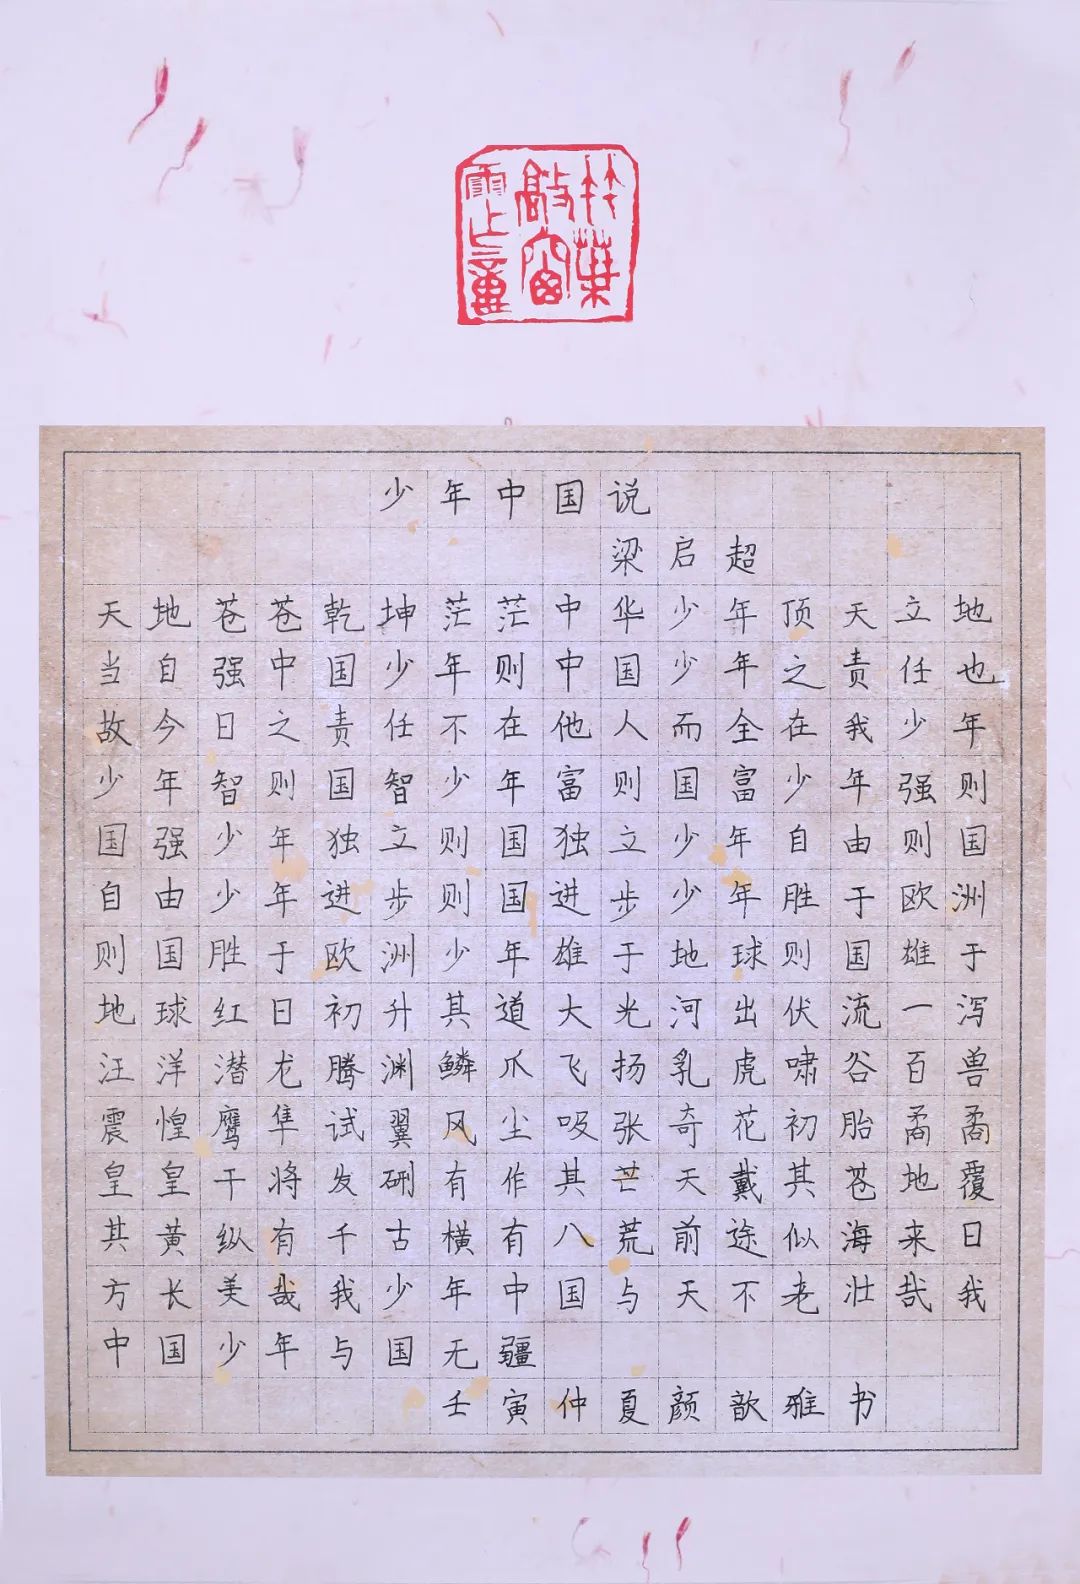 竹葉
敲窗
少年中国说
梁启超
天地苍苍乾坤茫茫中华少年顶天立地
当自强中国少年则中国少年之责任也
故今日之责任不在他人而全在我少年
少年智则国智少年富则国富少年强则
国强少年独立则国独立少年自由则国
自由少年进步则国进步少年胜于欧洲
则国胜于欧洲少年雄于地球则国雄于
地球红日初升其道大光河出伏流一泻
汪洋潜龙腾渊鳞爪飞扬乳虎啸谷百兽
震惶鹰隼试翼风尘吸张奇花初胎矞矞
皇皇干将发硎有作其芒天戴其苍地覆
其黄纵有千古横有八荒前途似海来日
方长美哉我少年中国与天不老壮哉我
中国少年与国无疆
壬寅仲夏颜歆雅书